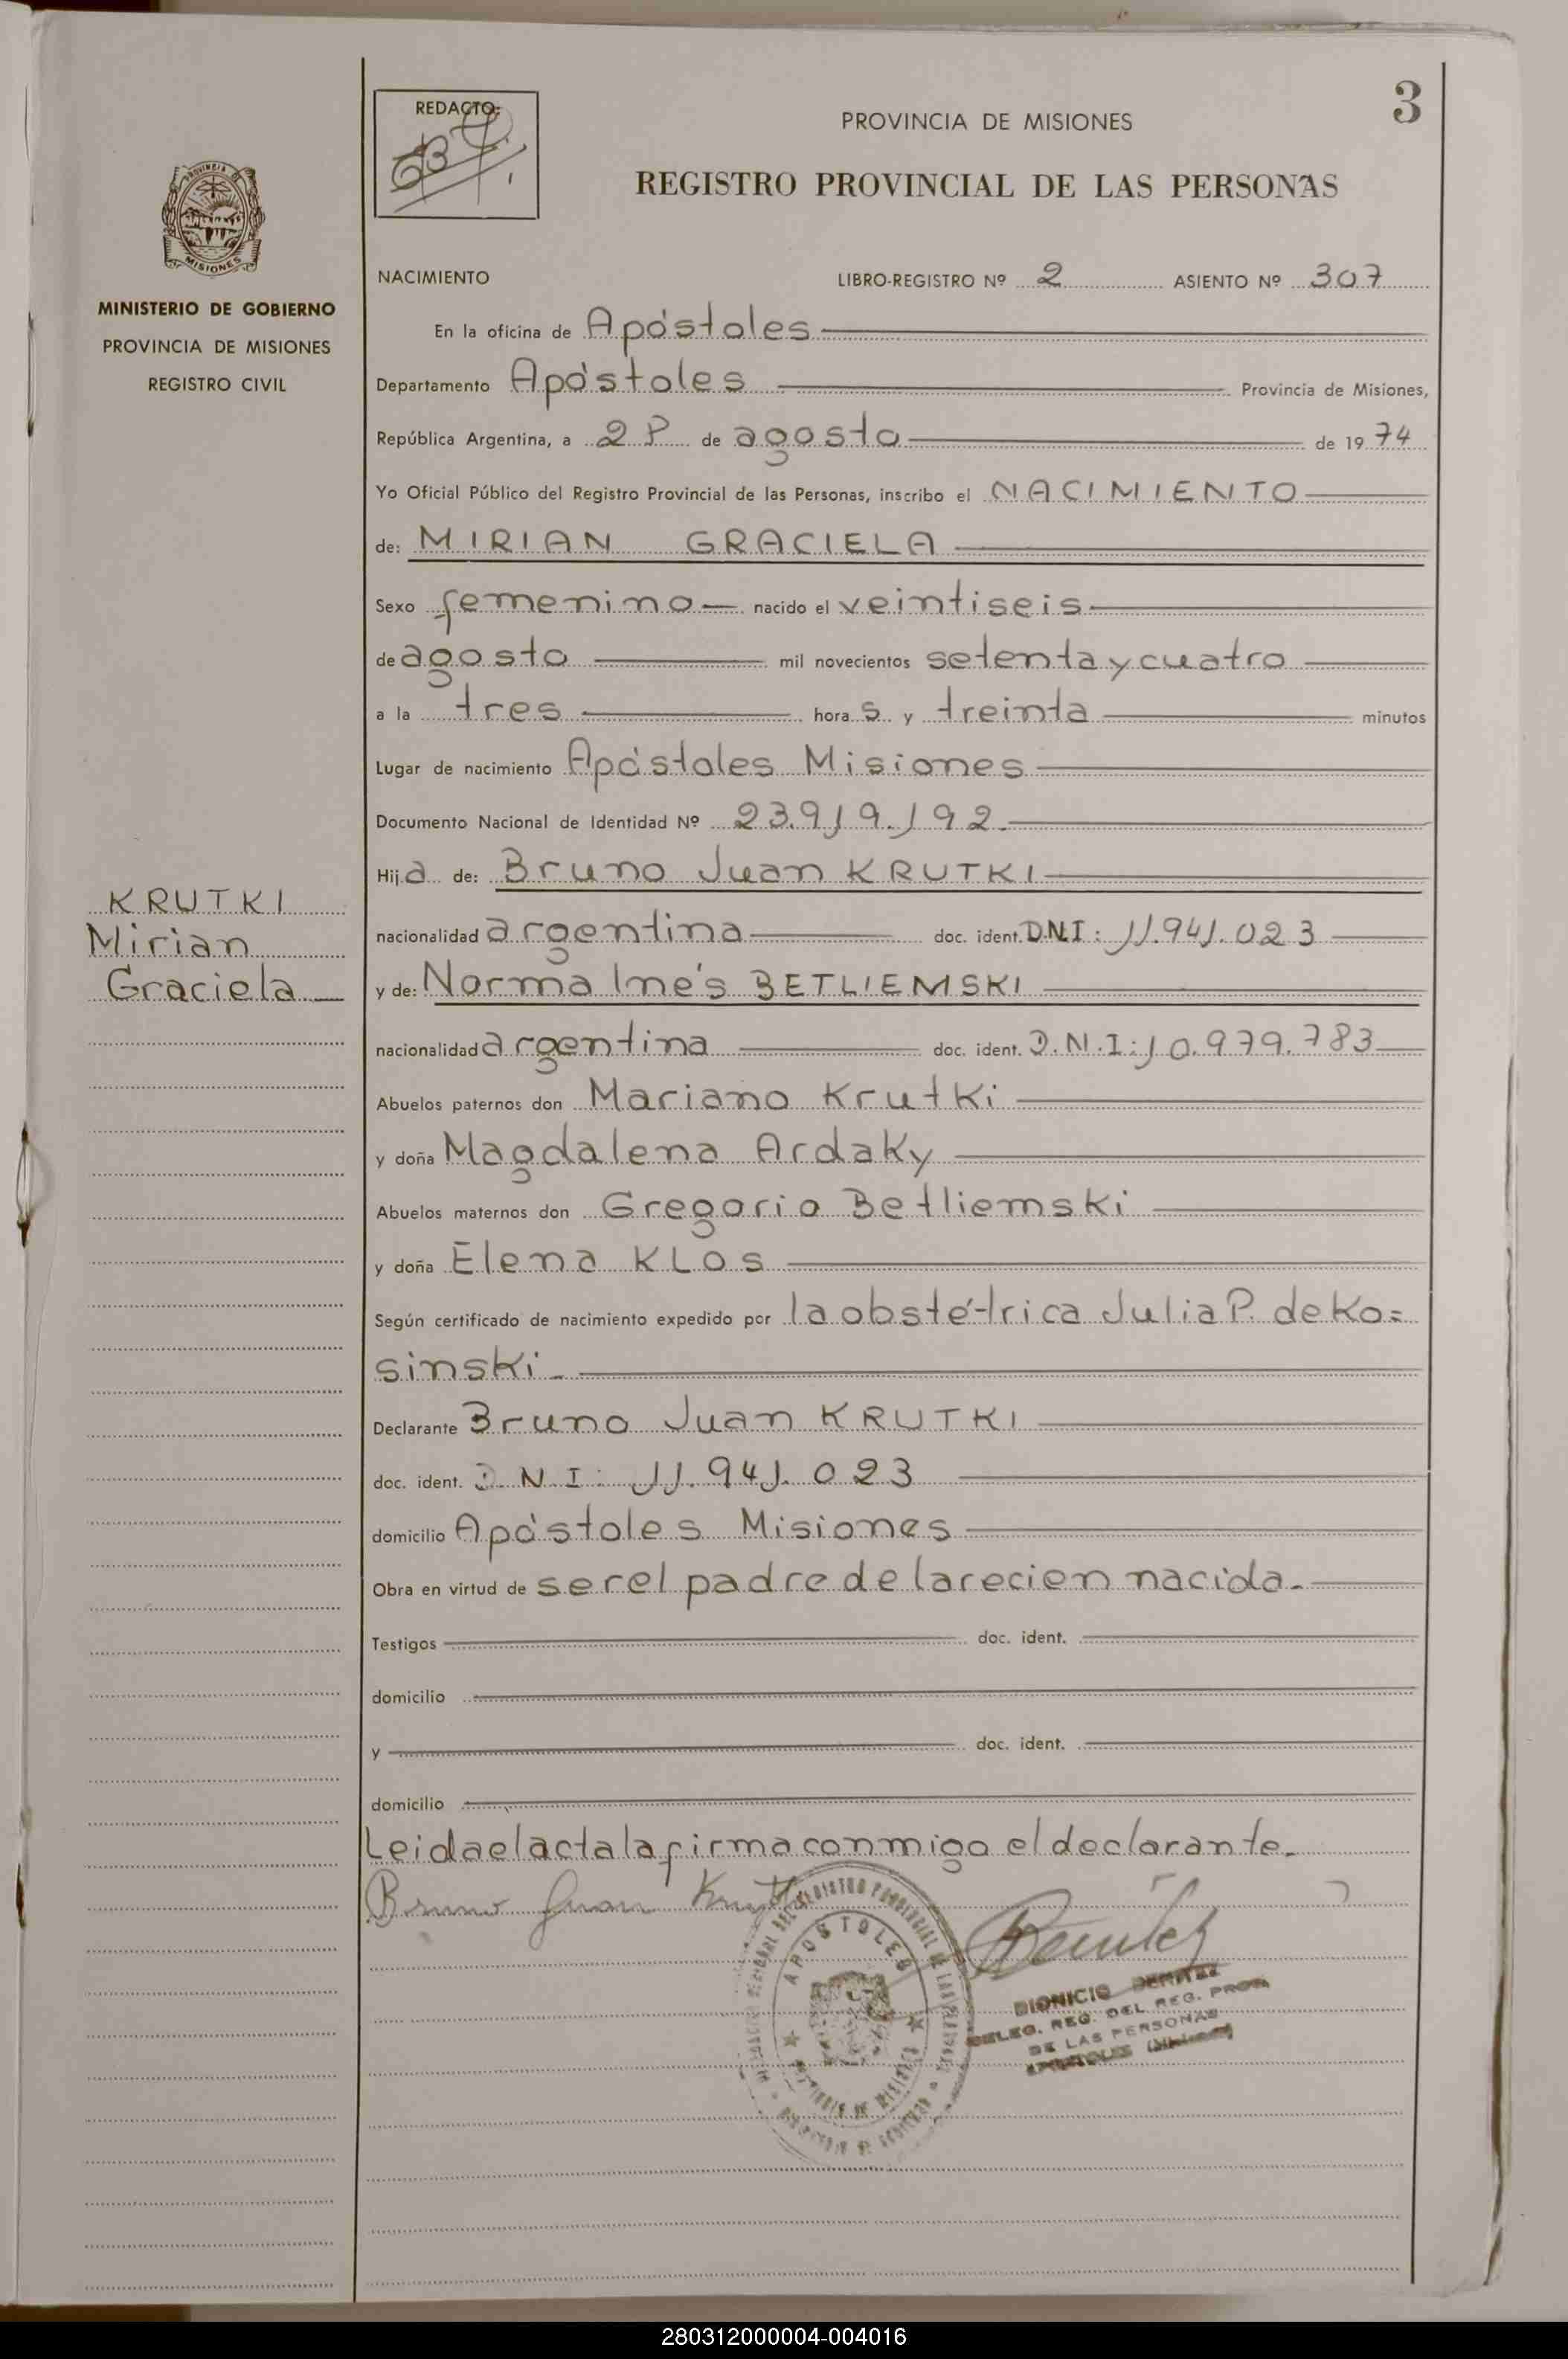 3
REDACTO:
PROVINCIA DE MISIONES
REGISTRO PROVINCIAL DE LAS PERSONAS
MISIONES
MINISTERIO DE GOBIERNO
PROVINCIA DE MISIONES
REGISTRO CIVIL
KRUTKI
Mirian
Graciela
NACIMIENTO LIBRO-REGISTRO Nº 2 ASIENTO Nº 307
En la oficina de Apóstoles
Departamento Apóstoles Provincia de Misiones,
República Argentina, a de agosto de 1974
Yo Oficial Público del Registro Provincial de las Personas, inscribo el NACIMIENTO
de: MIRIAN GRACIELA
Sexo femenino nacido el veintiseis
de agosto mil novecientos setenta y cuatro
a la tres horas y treinta minutos
Lugar de nacimiento Apóstoles Misiones
Documento Nacional de Identidad Nº 23.919.192.
Hija de: Bruno Juan KRUTKI
nacionalidad argentina doc. ident. D.N.I: 11.941.023
y de: Norma Inés BETLIEMSKI
nacionalidad argentina doc. ident. D.N.I: 10.979.783
Abuelos paternos don Mariano Krutki
y doña Magdalena Ardaky
Abuelos maternos don Gregorio Betliemski
y doña Elena KLOS
Según certificado de nacimiento expedido por la obstétrica Julia P. de Ko=
sinski.
Declarante Bruno Juan KRUTKI
doc. ident. D.N.I: 11.941.023
domicilio Apóstoles Misiones
Obra en virtud de ser el padre de la recien nacida.
Testigos doc. ident.
domicilio
y doc. ident.
domicilio
Leida el acta la firma conmigo el declarante.
Bruno Juan Krutki
APOSTOLES
DIONICIO BENITEZ
DELEG. REG. DEL REG. PROV.
DE LAS PERSONAS
APOSTOLES (Misiones)
280312000004-004016